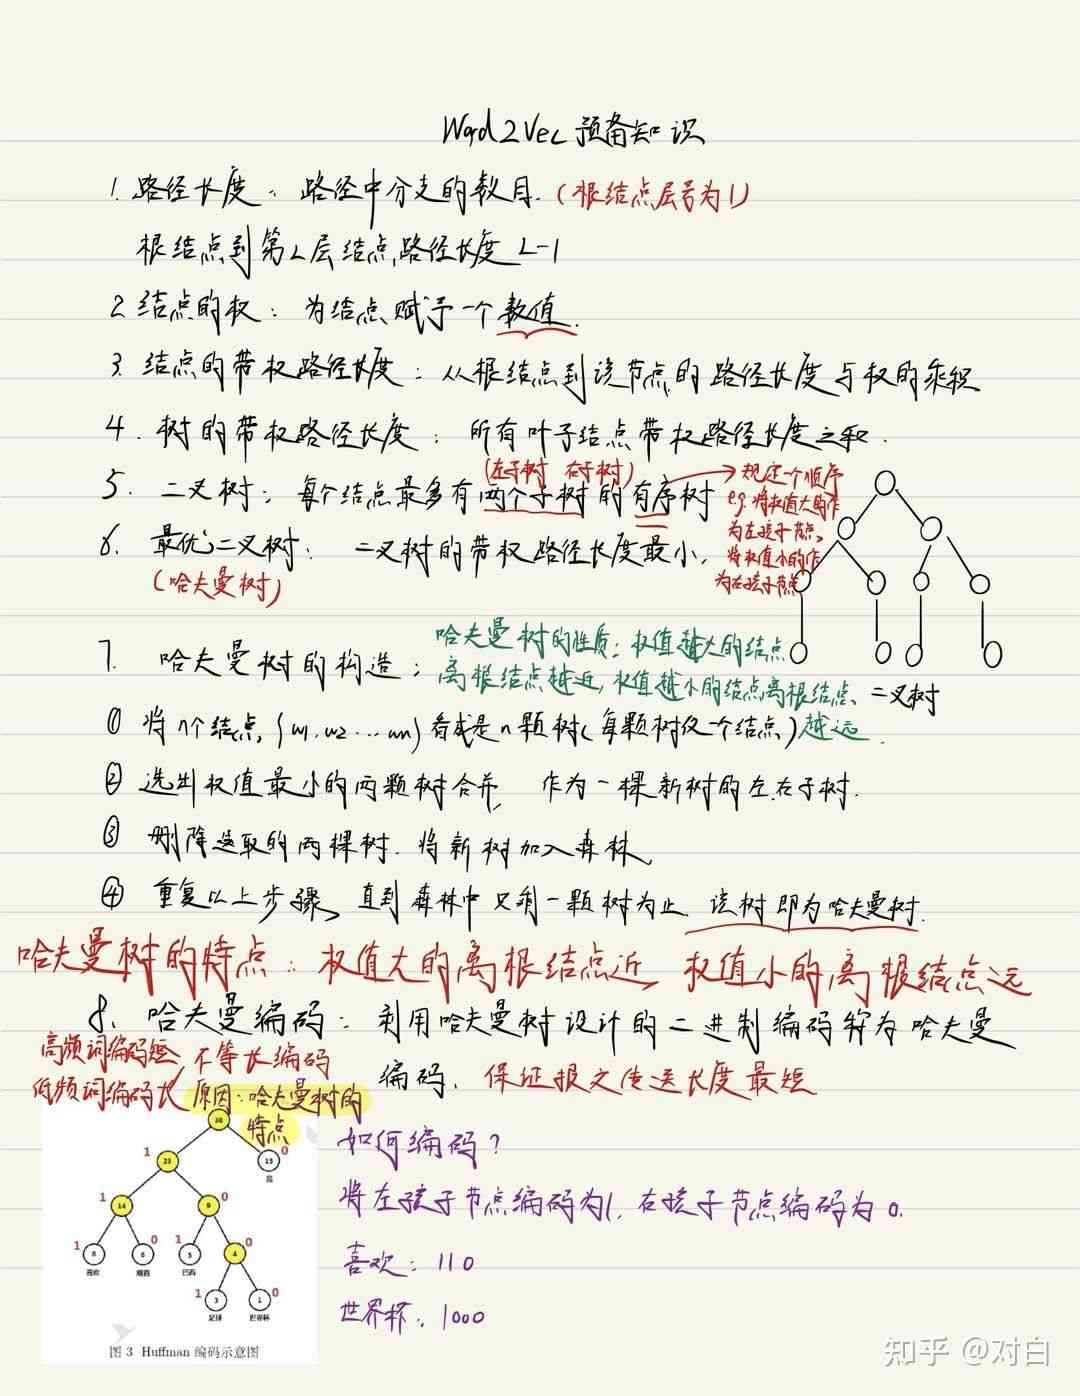 Word2Vec 预备知识
1. 路径长度：路径中分支的数目.（根结点层号为1）
根结点到第L层结点路径长度 L-1
2 结点的权：为结点赋予一个数值.
3. 结点的带权路径长度：从根结点到该节点的路径长度与权的乘积
4. 树的带权路径长度：所有叶子结点带权路径长度之和.
(左子树 右子树)
5. 二叉树：每个结点最多有两个子树的有序树
规定个顺序
e.g. 将权值大的作
为左孩子节点,
将权值小的作
为右孩子节点
6. 最优二叉树：二叉树的带权路径长度最小,
(哈夫曼树)
7. 哈夫曼树的构造：
哈夫曼树的性质：权值越大的结点
离根结点越近,权值越小的结点离根结点
越远.
二叉树
① 将n个结点,{w1.w2...wn}看成是n颗树(每颗树仅一个结点)
② 选出权值最小的两颗树合并, 作为一棵新树的左右子树.
③ 删除选取的两棵树. 将新树加入森林,
④ 重复以上步骤, 直到森林中只剩一颗树为止. 该树即为哈夫曼树.
哈夫曼树的特点：权值大的离根结点近, 权值小的离根结点远
8. 哈夫曼编码：利用哈夫曼树设计的二进制编码称为哈夫曼
编码. 保证报文传送长度最短
高频词编码短
低频词编码长
不等长编码
原因：哈夫曼树的
特点
38
1 23 15 0
我
1 14 9 0
1 8 6 0 1 5 4 0
喜欢 观看 巴西
1 3 1 0
足球 世界杯
图 3 Huffman 编码示意图
如何编码？
将左孩子节点编码为1, 右孩子节点编码为 0.
喜欢：110
世界杯：1000
知乎 @对白